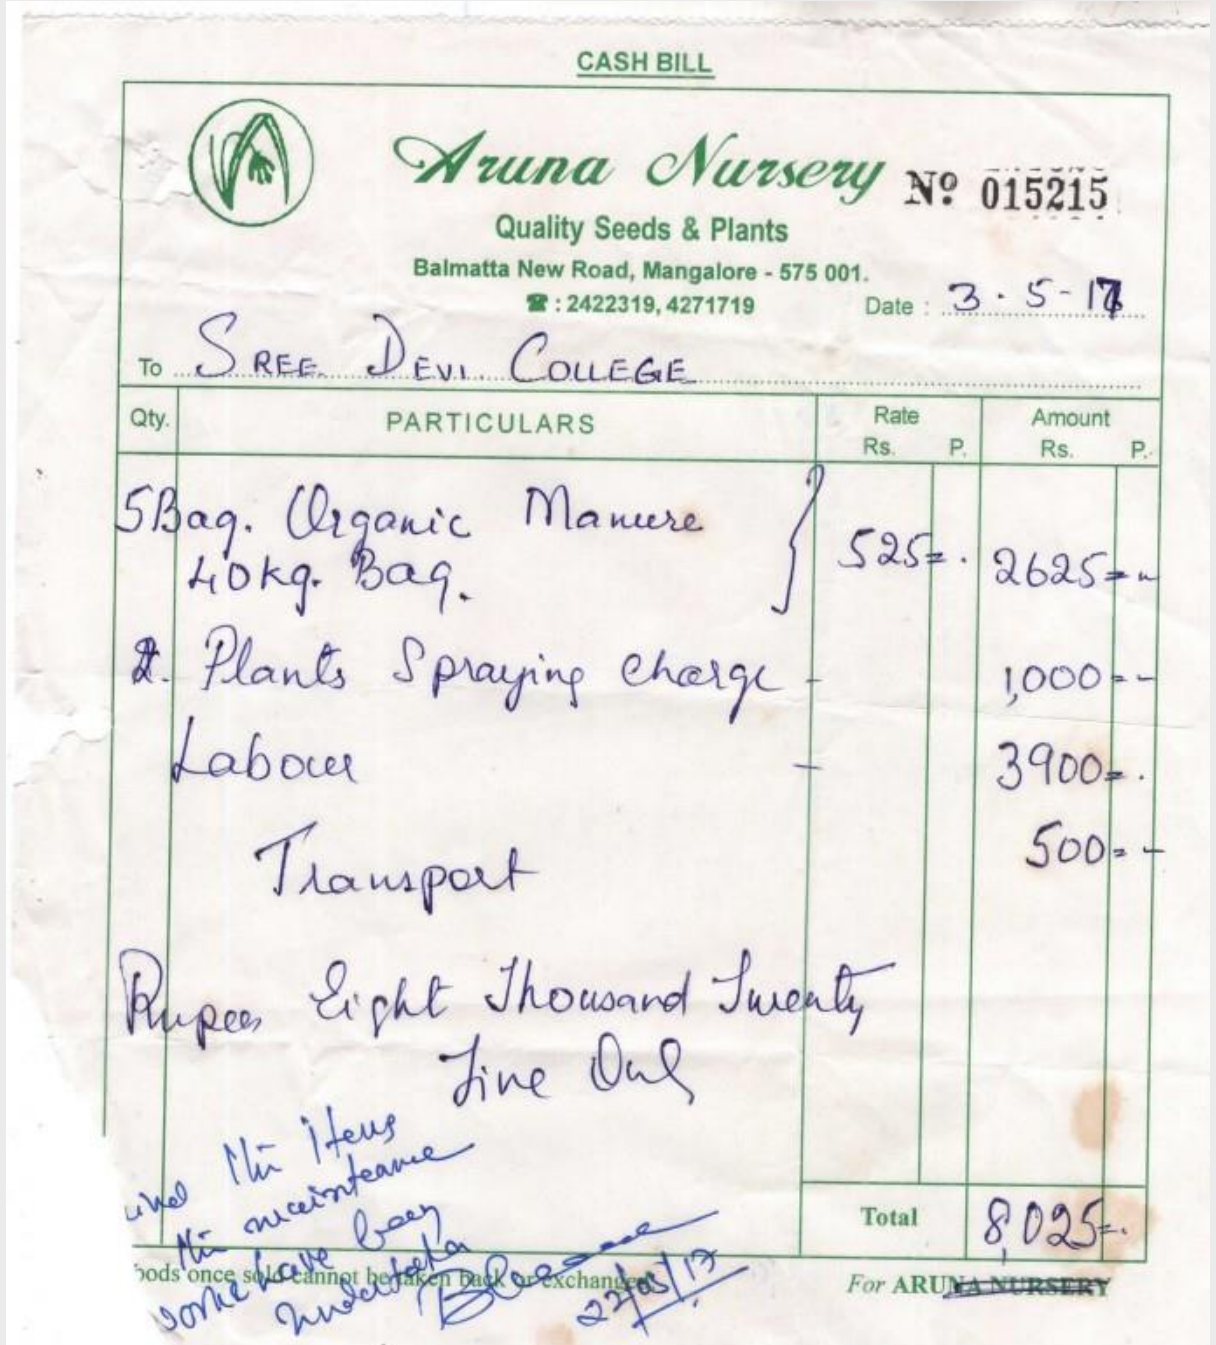 CASH BILL
Aruna Nursery
Nº 015215
Quality Seeds & Plants
Balmatta New Road, Mangalore - 575 001.
☎ : 2422319, 4271719
Date : 3 . 5 - 17
To SREE DEVI COLLEGE
Qty. PARTICULARS Rate Rs. P. Amount Rs. P.
5 Bag. Organic Manure
40kg. Bag. 525=. 2625=-
2. Plants Spraying Charge - 1,000=-
Labour - 3900=.
Transport 500=-
Rupees Eight Thousand Twenty
Five Only
Total 8,025=.
the items
the mainteance
have
oods once sold cannot be taken back or exchanged
22/05/17
For ARUNA NURSERY